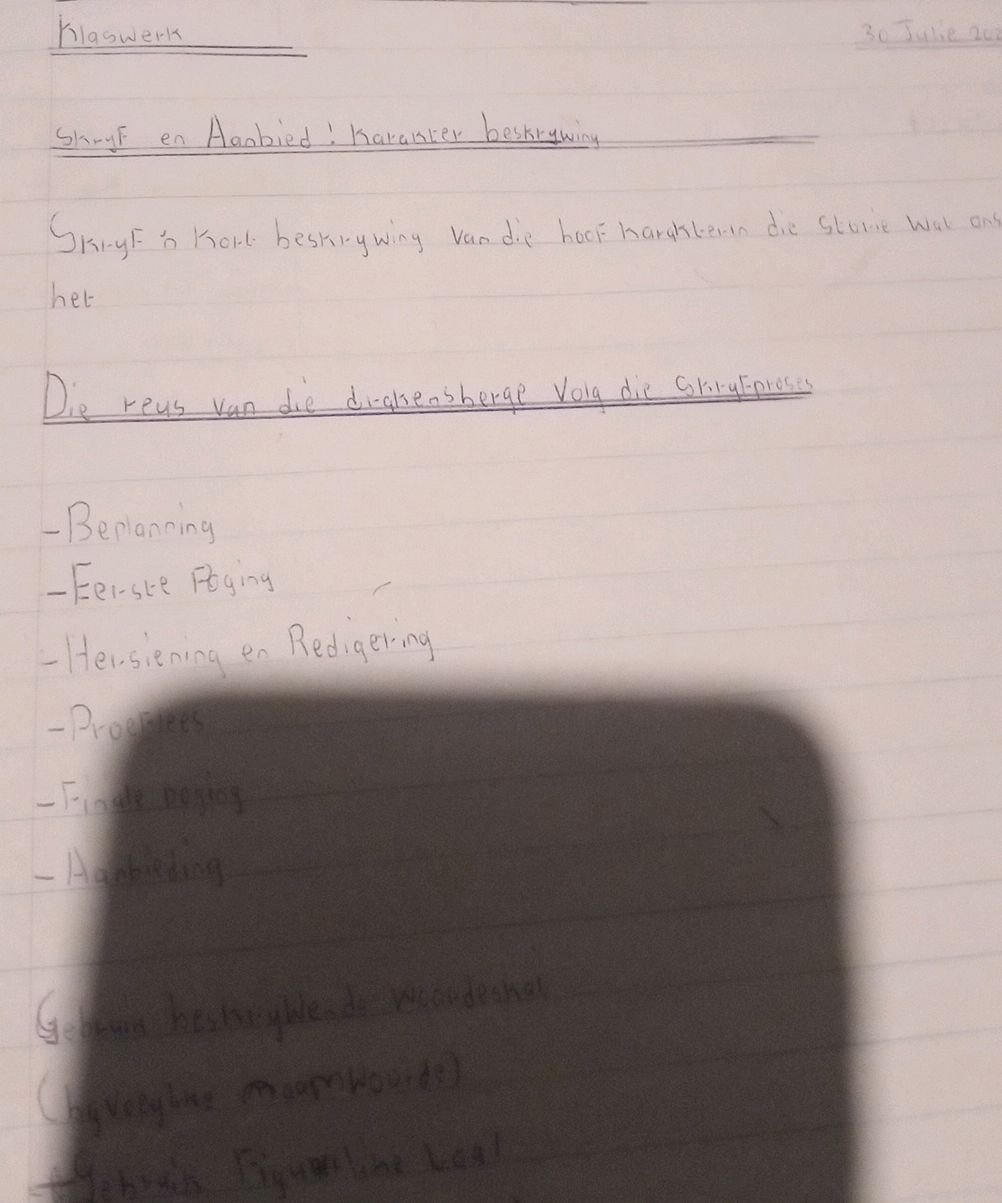 Klaswerk
30 Julie 202
Skryf en Aanbied: Karakter beskrywing
Skryf 'n Kort beskrywing van die hoof karakter in die storie wat ons
het
Die reus van die drakensberge Volg die Skryfproses
- Beplanning
- Eerste Poging
- Hersiening en Redigering
- Proeflees
- Finale poging
- Aanbieding
Gebruik beskrywende woordeskat
(byvoeglike naamwoorde)
- Gebruik Figuurlike taal